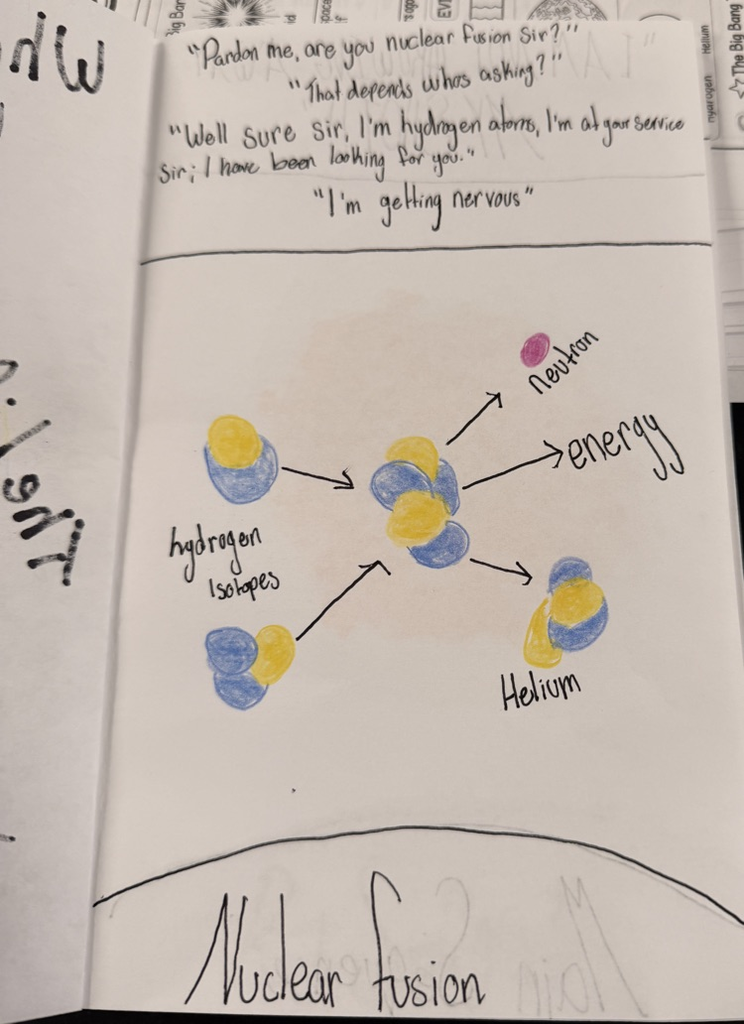 "Pardon me, are you nuclear fusion Sir?"
"That depends whos asking?"
"Well sure sir, I'm hydrogen atoms, I'm at your service
sir; I have been looking for you."
"I'm getting nervous"
neutron
energy
hydrogen
Isotopes
Helium
Nuclear fusion
Helium
hydrogen
The Big Bang